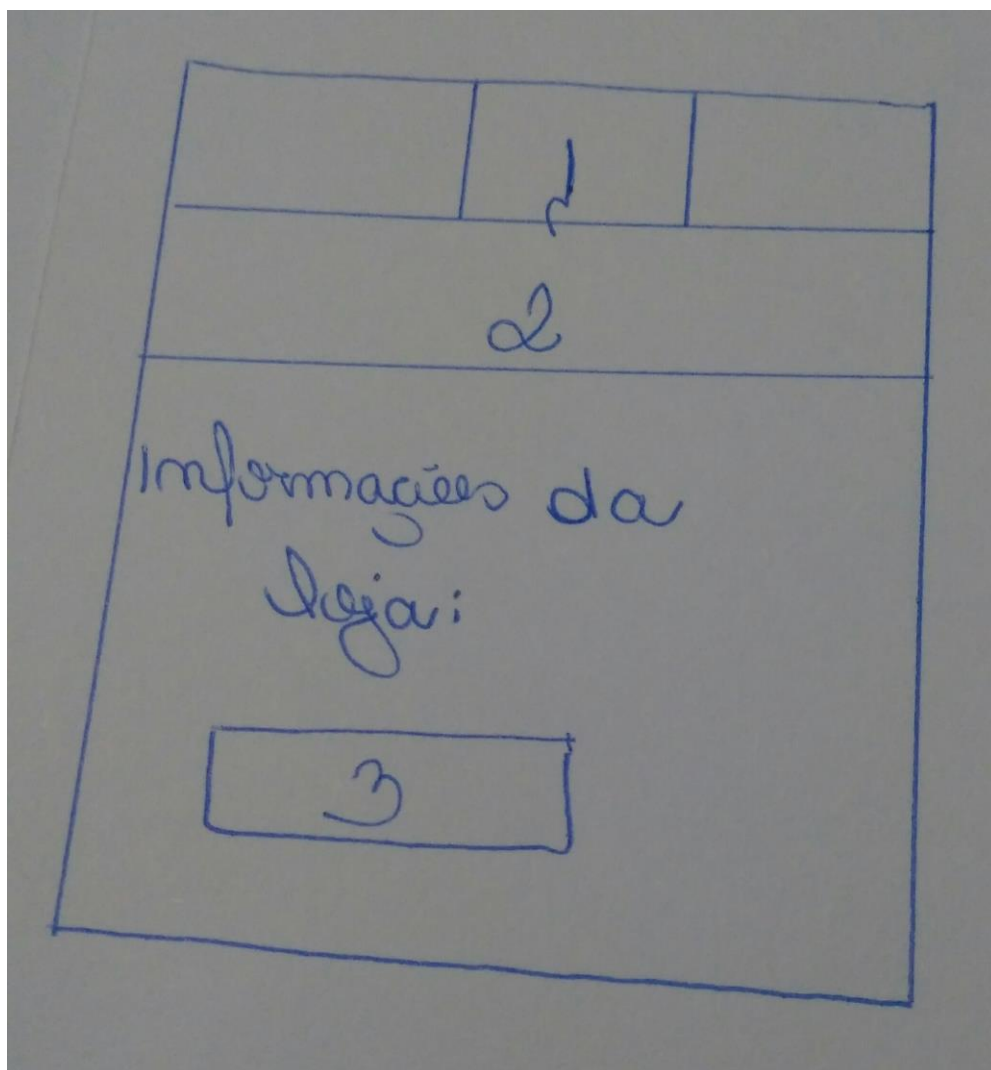 1
2
Informações da
loja:
3